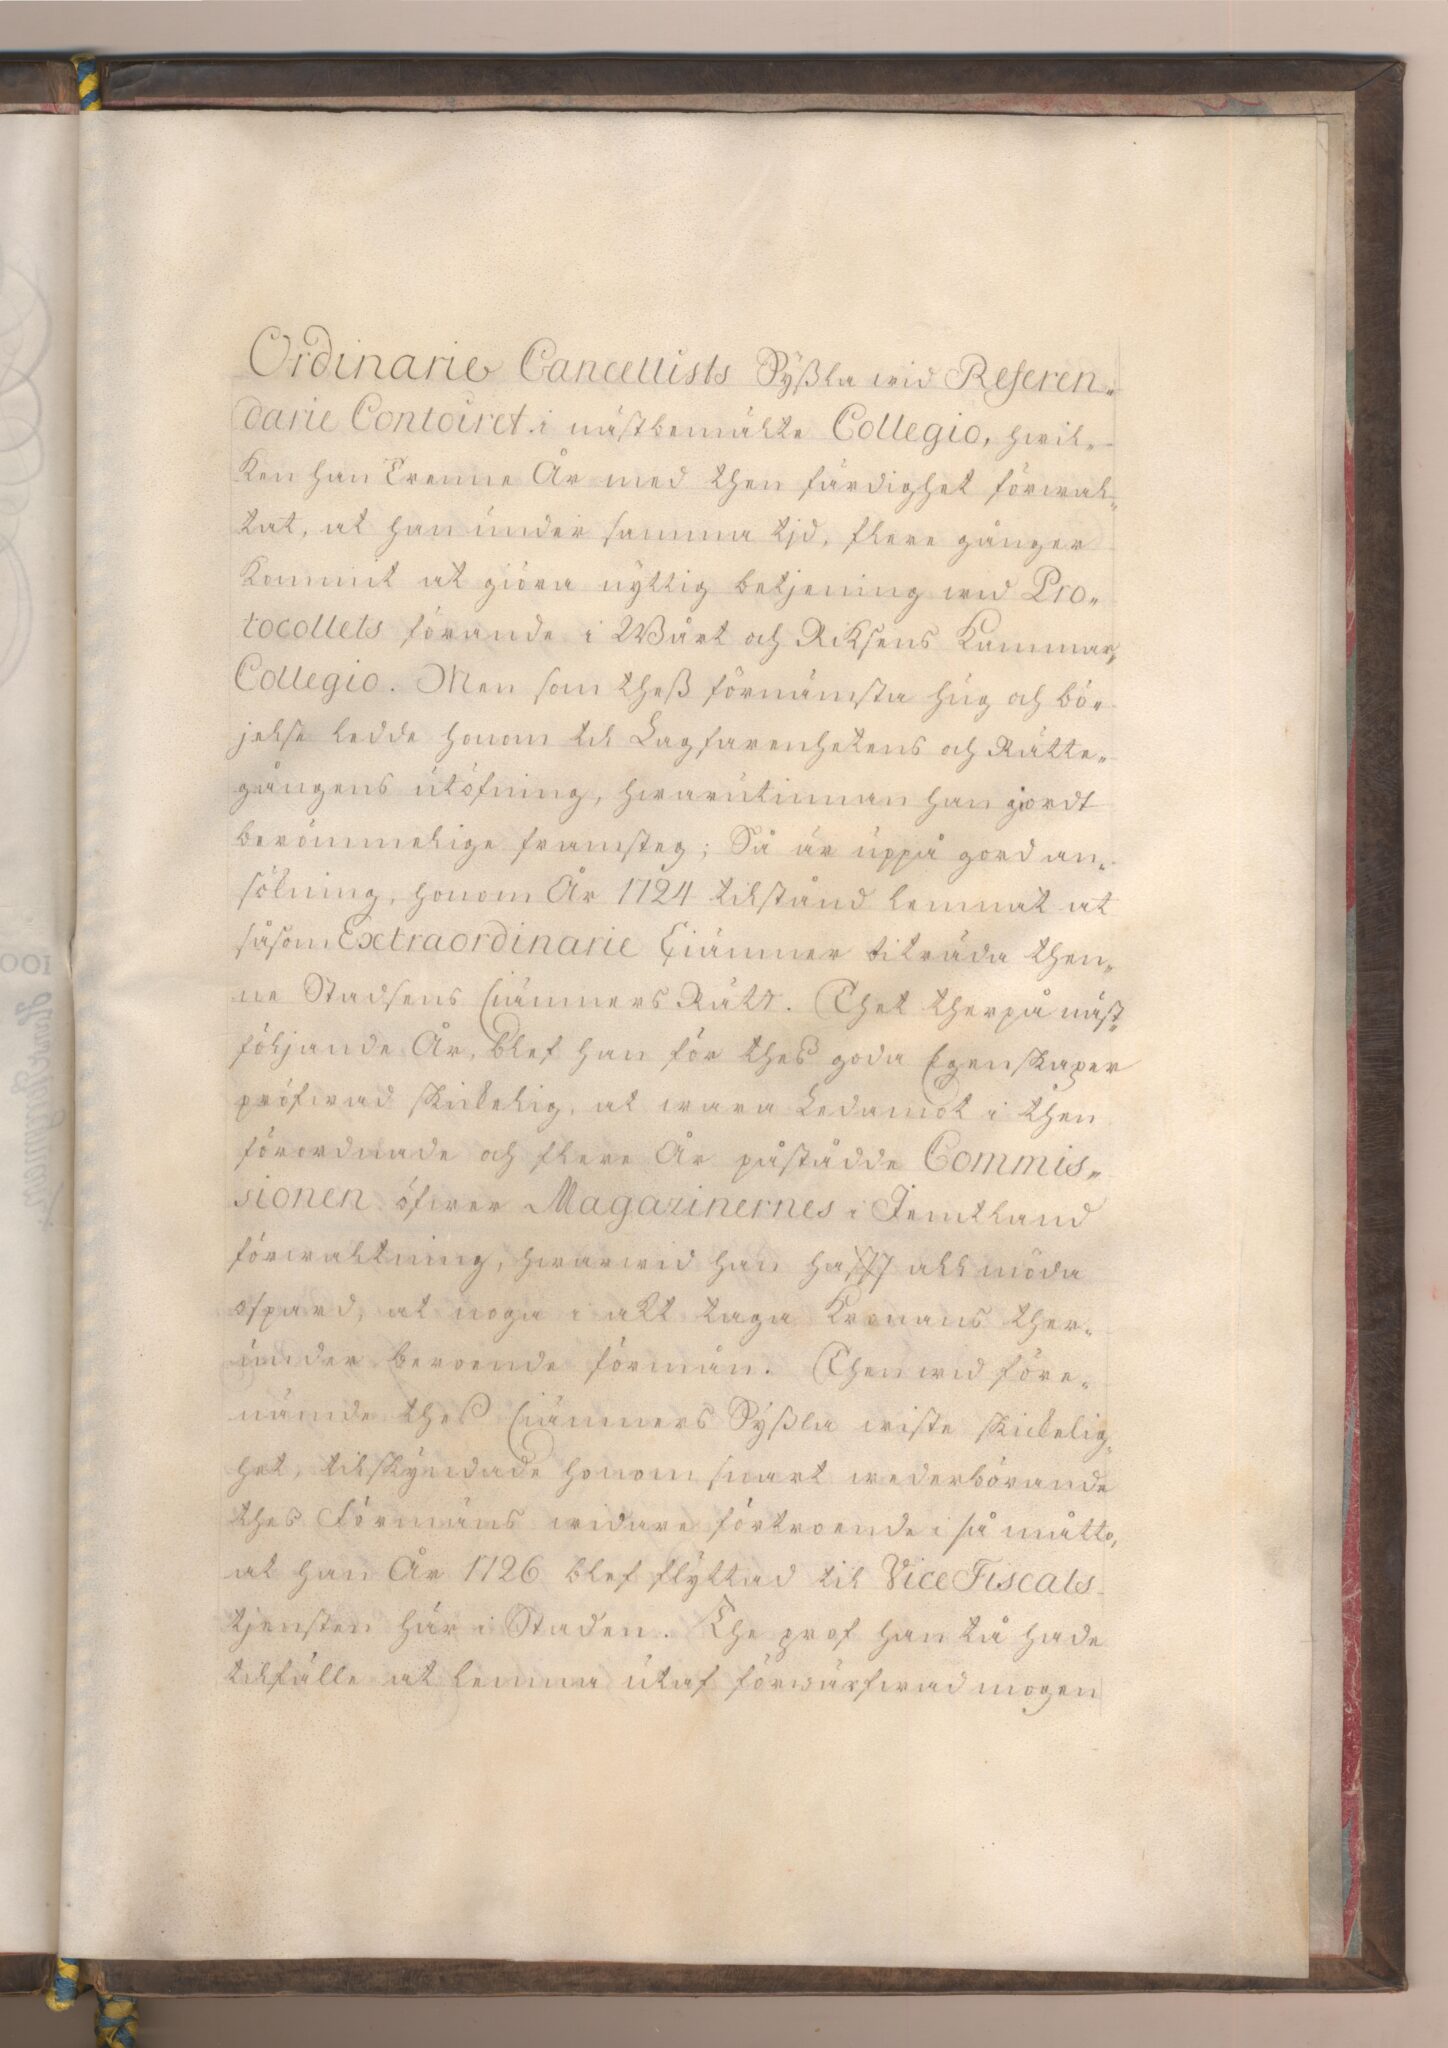 Ordinarie Cancellists Sÿßla wid Referen-
darie Contoiret i nästbemälte Collegio, hwil-
ken han Trenne År med then färdighet förwal-
tat, at han under samma tjd, flere gånger
kommit at giöra nyttig betjening wid Pro-
tocollets förande i Wårt och Riksens Kammar-
Collegio. Men som theß förnämsta hug och bö-
jelse ledde honom til Lagfarenhetens och Rätte-
gångens utöfning, hwarutinnan han gjordt
berömmelige framsteg; Så är uppå giord an-
sökning, honom År 1724 tilstånd lemnat at
såsom Extraordinarie Ciämner tilträda then-
ne Stadsens Ciämners Rätt. Thet therpå näst-
följande År, blef han för thes goda Egenskaper
pröfwad skickelig, at wara Ledamot i then
förordnade och flere År påstådde Commis-
sionen öfwer Magazinernes i Jemtland
förwaltning, hwarwid han haft all möda
ospard, at noga i akt taga Kronans ther-
under beroende förmån. Then wid före-
nämde thes Ciämners Sÿßla wiste skickelig-
het, tilskyndade honom snart wederbörande
thes Förmäns widare förtroende i så måtto,
at han År 1726 blef flÿttad til Vice Fiscals
tjensten här i Staden. The prof han tå hade
tilfälle at lemna utaf förwärfwad mogen